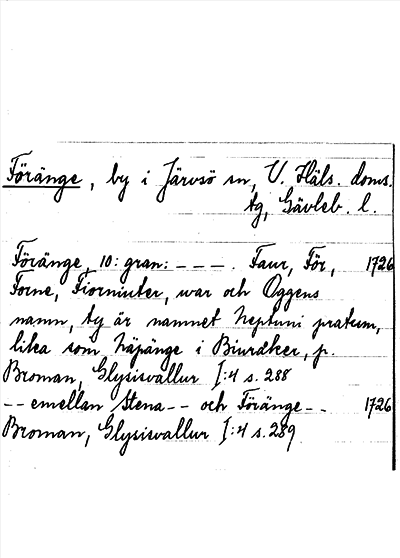 Föränge, by i Järvsö sn, V. Häls. doms.
tg, Gävleb. l.
Föränge, 10: gran: – – – . Faur, För, 1726
Forne, Fiorniuter, war och Oggens
namn, ty är namnet Neptuni pratum,
lika som Näpänge i Biuråker, p.
Broman, Glysisvallur I:4 s. 288
– – emellan Stena – – och Föränge – – 1726
Broman, Glysisvallur I:4 s. 289